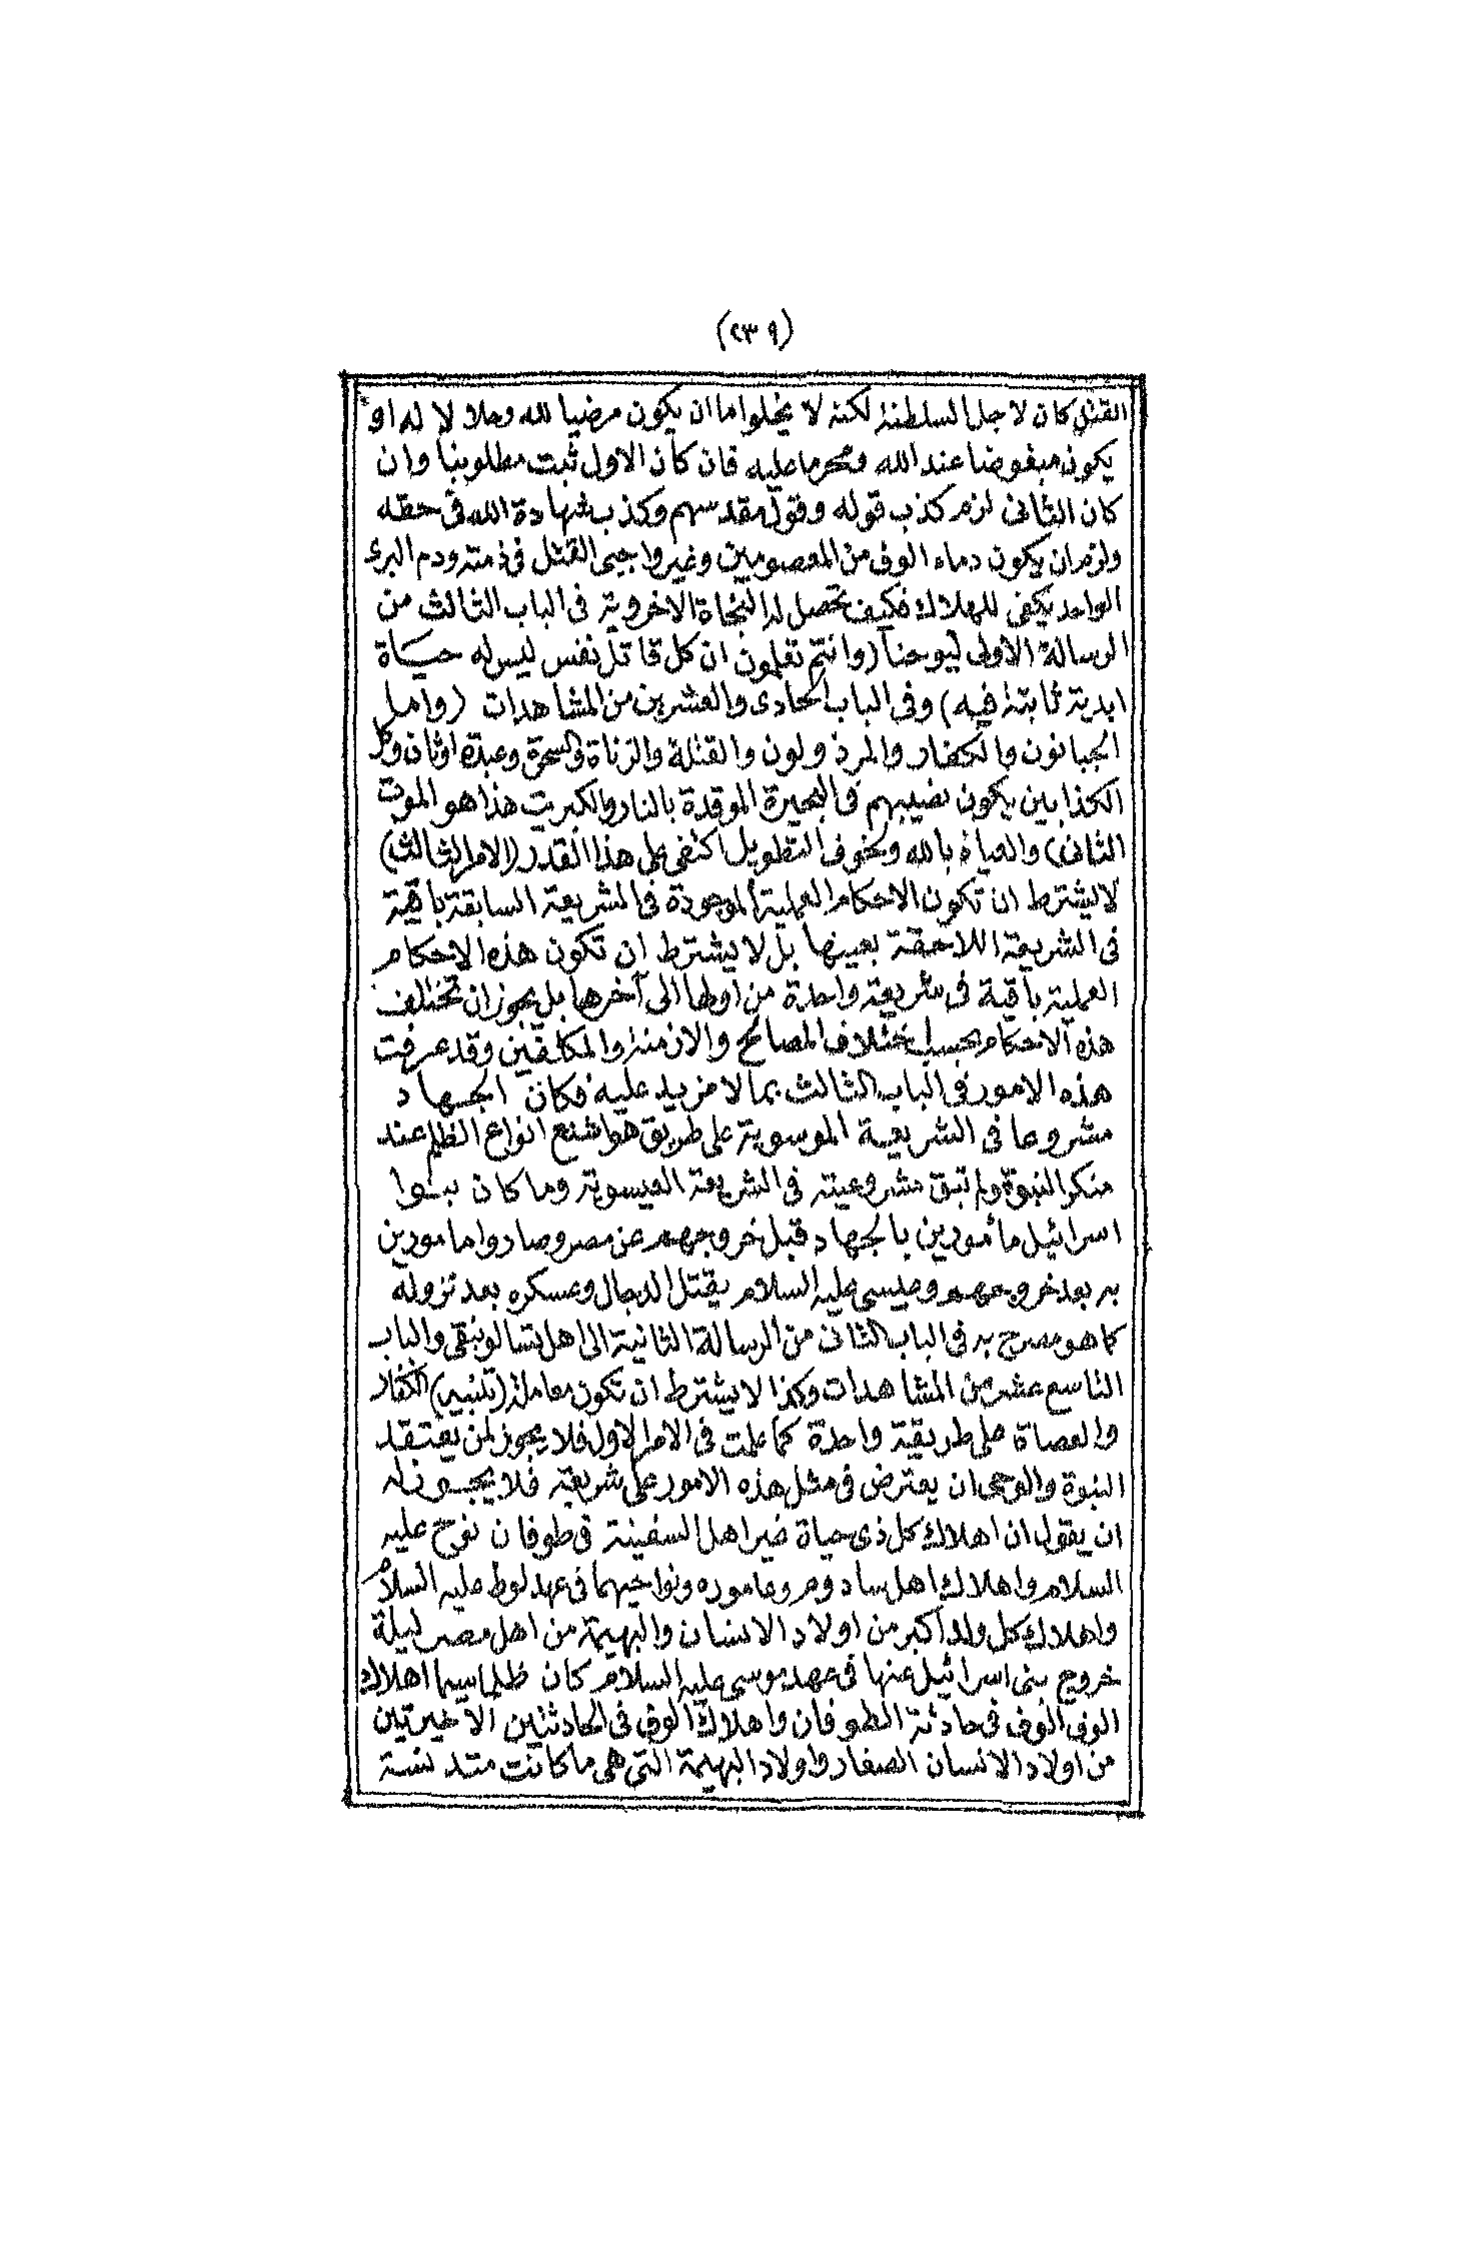 (٢٣٩)
القتل كان لاجل السلطنة لكنه لا يخلوا ما ان يكون مرضيا لله وحلالا له او
يكون مبغوضا عند الله ومحرما عليه فان كان الاول ثبت مطلوبنا وان
كان الثانى لزم كذب قوله وقول مقدسهم وكذب شهادة الله فى حقه
ولزم ان يكون دماء الوف من المعصومين وغير واجبى القتل فى ذمته ودم البرى
الواحد يكفى للهلاك فكيف تحصل له النجاة الاخروية فى الباب الثالث من
الرسالة الاولى ليوحنا (وانتم تعلمون ان كل قاتل نفس ليس له حياة
ابدية ثابتة فيه) وفى الباب الحادى والعشرين من المشاهدات (واما
الجبانون والكفار والمرذولون والقتلة والزناة والسحرة وعبدة اوثان وكل
الكذابين يكون نصيبهم فى البحيرة الموقدة بالنار والكبريت هذا هو الموت
الثانى) والعياذ بالله ولخوف التطويل اكتفى على هذا القدر (الامر الثالث)
لا يشترط ان تكون الاحكام العملية الموجودة فى الشريعة السابقة باقية
فى الشريعة اللاحقة بعينها بل لا يشترط ان تكون هذه الاحكام
العملية باقية فى شريعة واحدة من اولها الى آخرها بل يجوز ان تختلف
هذه الاحكام بحسب اختلاف المصالح والازمنة والمكلفين وقد عرفت
هذه الامور فى الباب الثالث بما لا مزيد عليه فكان الجهاد
مشروعا فى الشريعة الموسوية على طريق هو اشنع انواع الظلم عند
منكر النبوة ولم تبق مشروعيته فى الشريعة العيسوية وما كان بنوا
اسرائيل مأمورين بالجهاد قبل خروجهم عن مصر وصاروا مامورين
به بعد خروجهم وعيسى عليه السلام يقتل الدجال وعسكره بعد نزوله
كما هو مصرح به فى الباب الثانى من الرسالة الثانية الى اهل تسالونيقى والباب
التاسع عشر من المشاهدات وكذا لا يشترط ان تكون معاملة (تنبيه) الكفار
والعصاة على طريقة واحدة كما علمت فى الامر الاول فلا يجوز لمن يعتقد
النبوة والوحى ان يعترض فى مثل هذه الامور على شريعة فلا يجوز له
ان يقول ان اهلاك كل ذى حياة غير اهل السفينة فى طوفان نوح عليه
السلام واهلاك اهل سادوم وعاموره ونواحيهما فى عهد لوط عليه السلام
واهلاك كل ولد اكبر من اولاد الانسان والبهيمة من اهل مصر ليلة
خروج بنى اسرائيل عنها فى عهد موسى عليه السلام كان ظلما سيما اهلاك
الوف الوف فى حادثة الطوفان واهلاك الوف فى الحادثتين الاخيرتين
من اولاد الانسان الصغار واولاد البهيمة التى هى ما كانت متدنسة